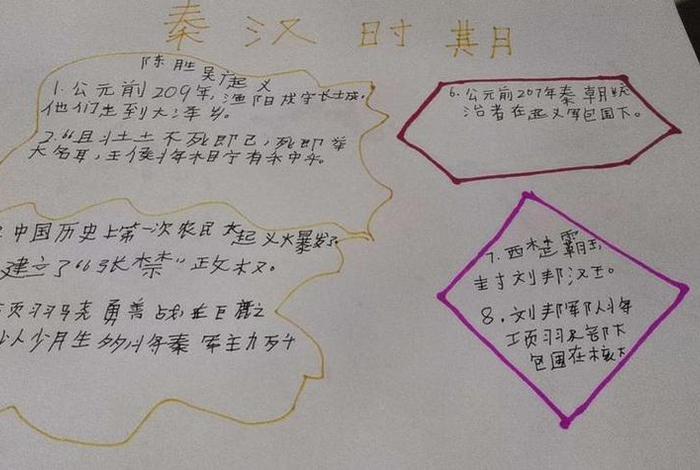 秦汉时期
陈胜吴广起义
1.公元前209年,渔阳戍守长士戍。
他们走到大泽乡。
2."且壮士不死即已,死即举
大名耳,王侯将相宁有种乎。
中国历史上第一次农民大起义大暴发了
建立了"张楚"政权。
项羽骁勇善战在巨鹿之
以少胜多将秦军主力歼
6.公元前207年秦朝统
治者在起义军包围下。
7.西楚霸王
封刘邦汉王。
8.刘邦军队将
项羽及部下
包围在